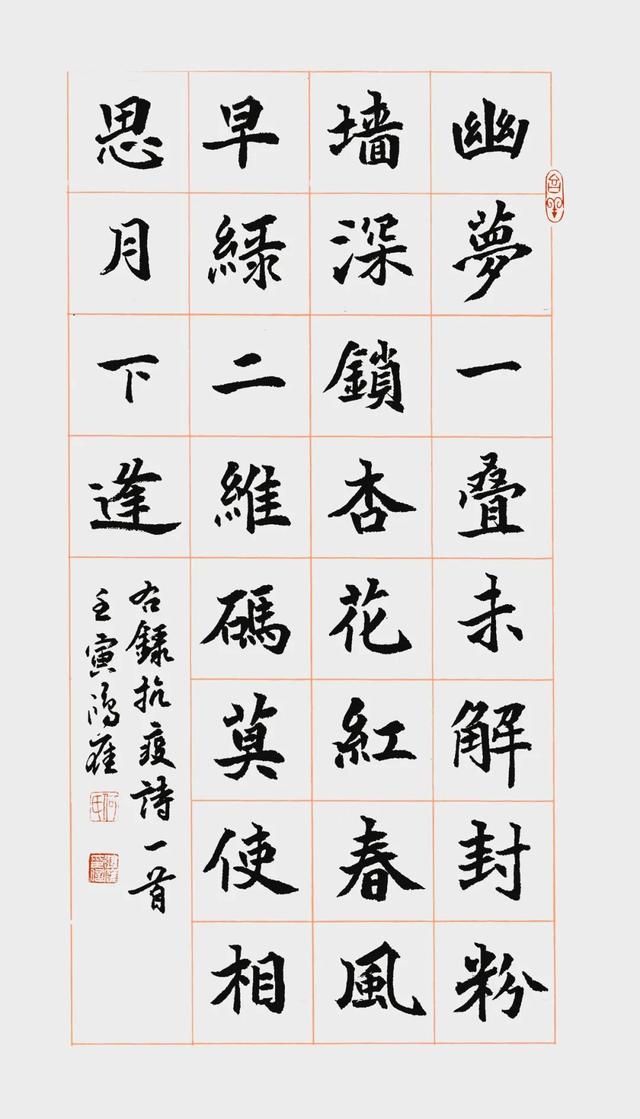 幽夢一叠未解封粉
墙深鎖杏花紅春風
早綠二維碼莫使相
思月下逢
右録抗疫詩一首
壬寅鴻雁